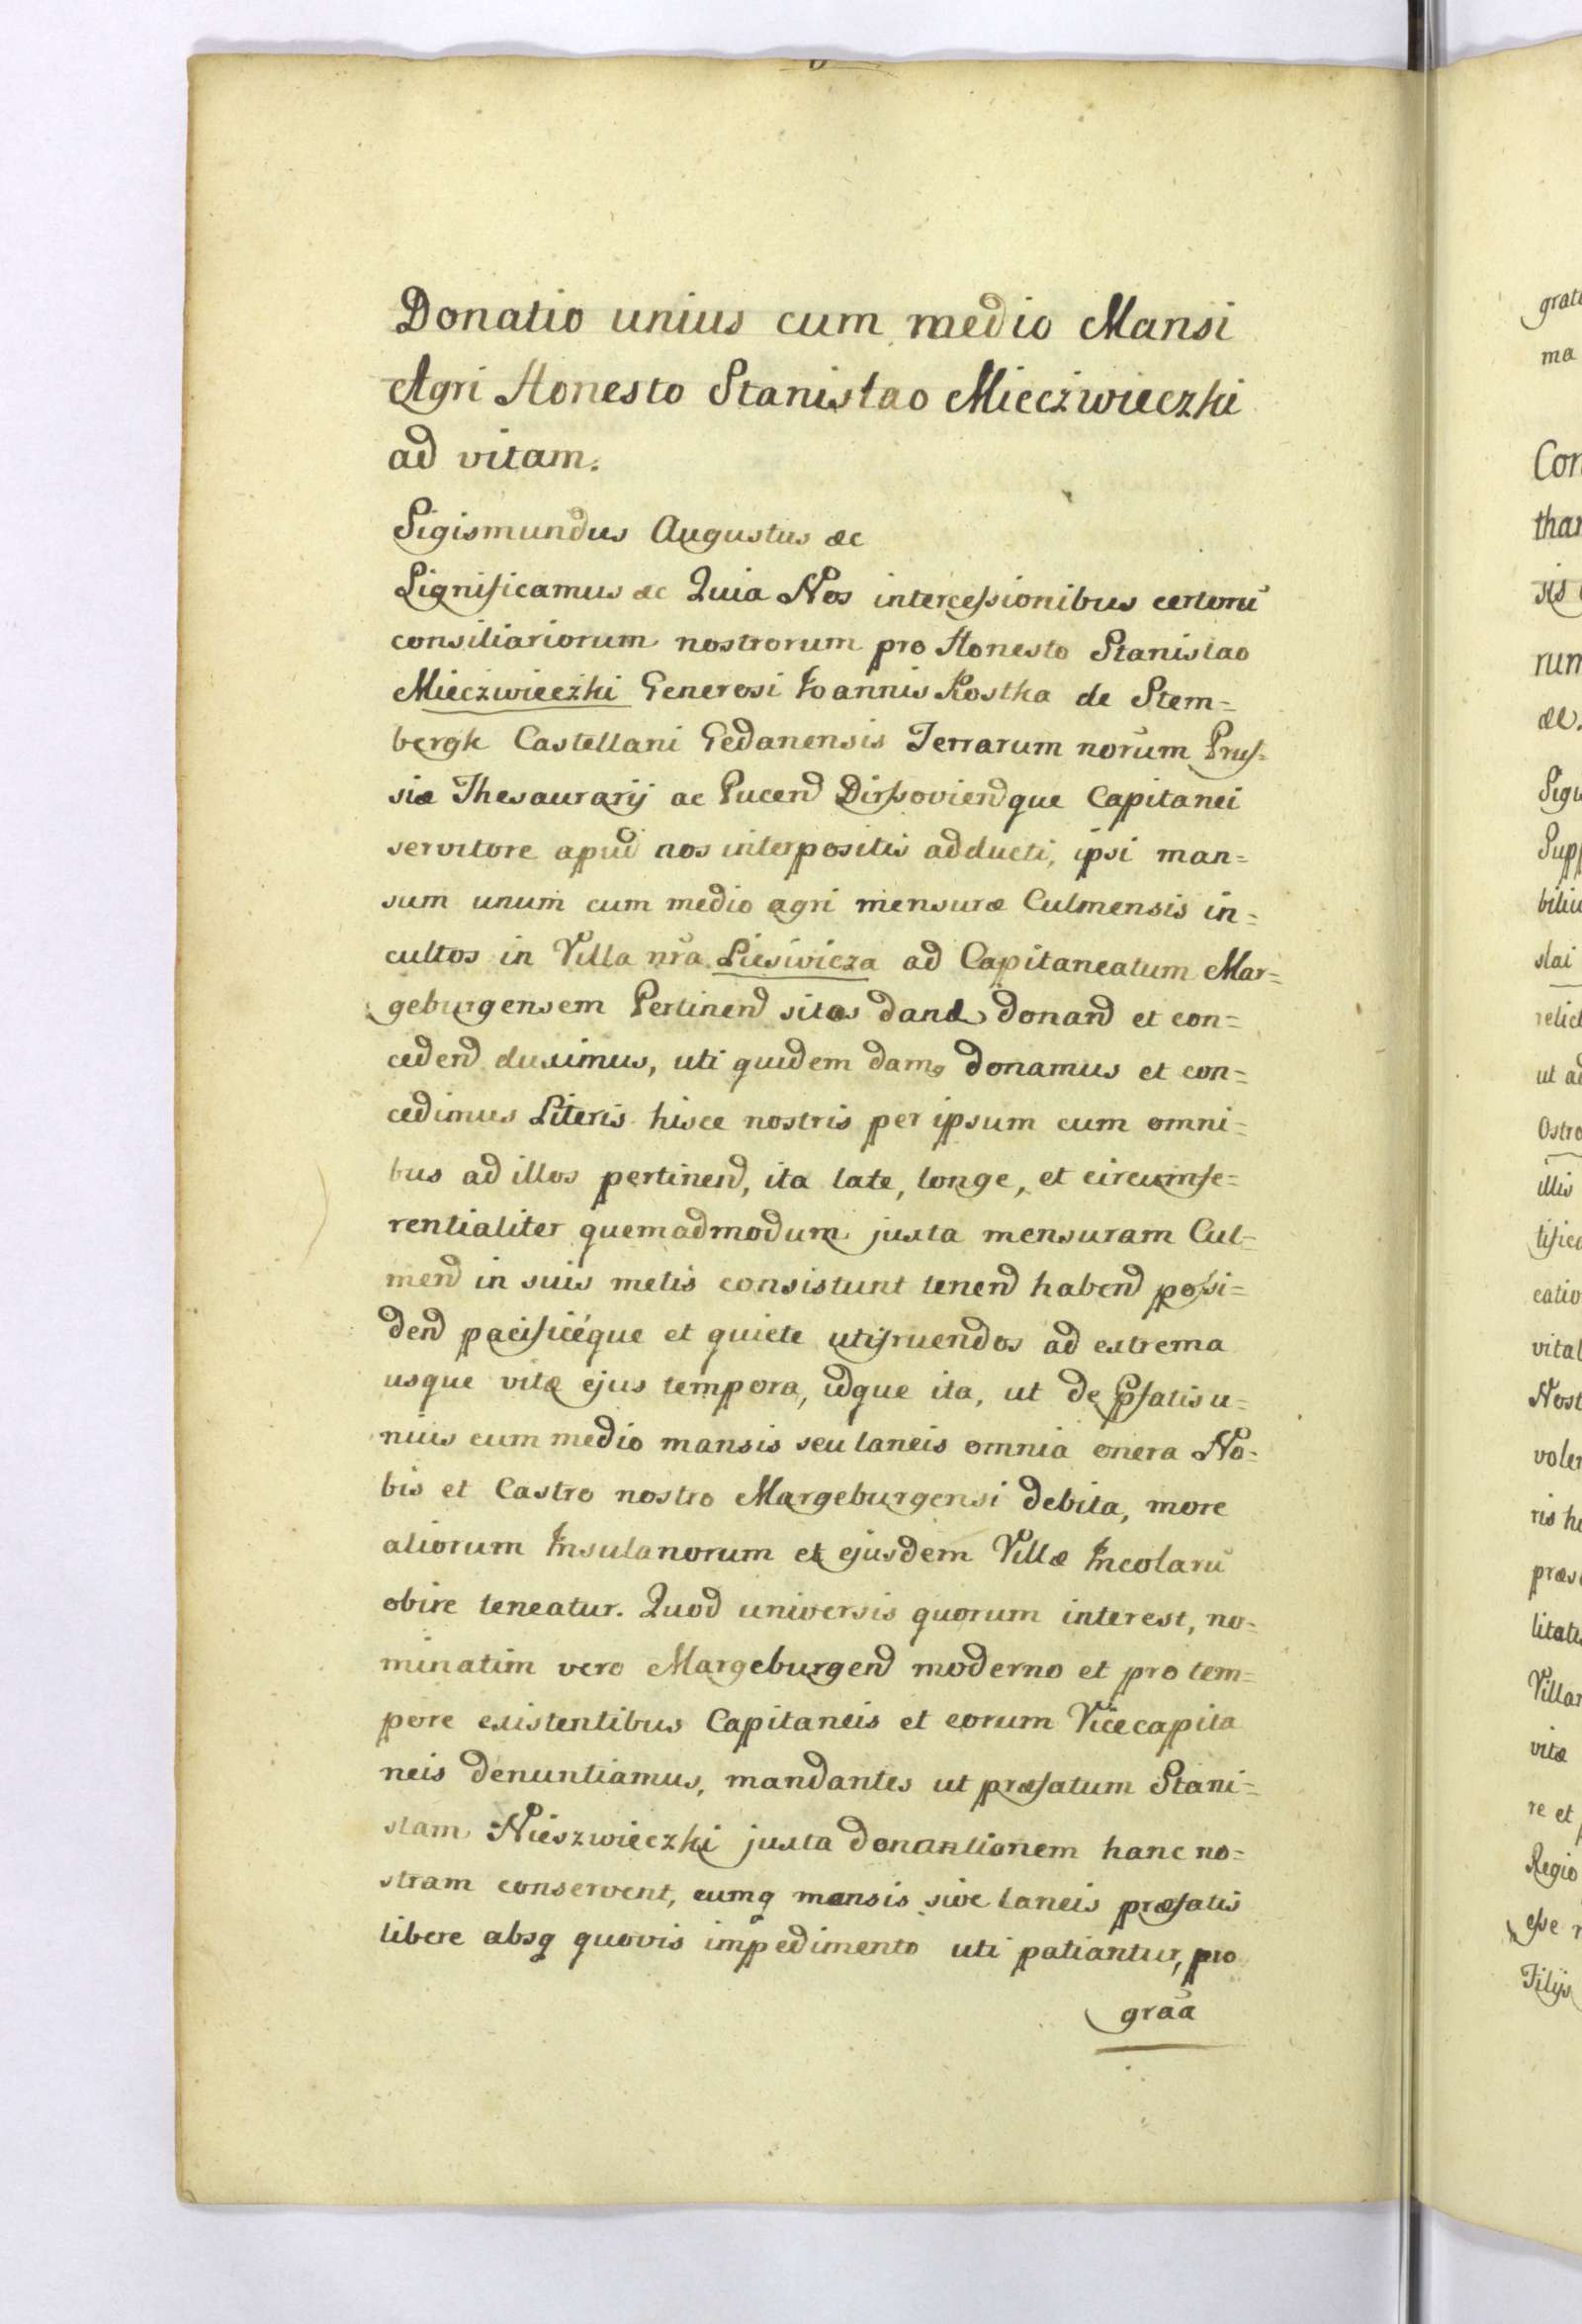 Donatio unius cum medio Mansi
Agri Honesto Stanislao Miecżwieczki
ad vitam.
Sigismundus Augustus æc
Significamus æc Quia Nos intercessionibus certorū
consiliariorum nostrorum pro Honesto Stanislao
Mieczwieeżki Generosi Ioannis Kostka de Stem=
bergk Castellani Gedanensis Terrarum norūm Prus=
siæ Thesaurarij ac Pucend Dirssoviendque Capitanei
servitore apud nos interpositis adducti, ipsi man=
sum unum cum medio agri mensuræ Culmensis in=
cultos in Villa nr̃a Liesivicza ad Capitaneatum Mar=
geburgensem Pertinend sitos dand donand et con=
cedend duximus, uti quidem damg donamus et con=
cedimus Literis hisce nostris per ipsum cum omni=
bus ad illos pertinend, ita late, longe, et circumfe=
rentialiter quemadmodum juxta mensuram Cul=
mend in suis metis consistunt tenend habend possi=
dend pacificéque et quiete utifruendos ad extrema
usque vitæ ejus tempora, idque ita, ut de Pfatis u=
nius cum medio mansis seu laneis omnia onera No=
bis et Castro nostro Margeburgensi debita, more
aliorum Insulanorum et ejusdem Villæ Incolarū
obire teneatur. Quod universis quorum interest, no=
minatim vero Margeburgend moderno et pro tem=
pore existentibus Capitaneis et eorum Vicecapita
neis denuntiamus, mandantes ut præfatum Stani=
slam Nieszwieczki juxta donantionem hanc no=
stram conservent, eumq mansis sive laneis præfatis
libere absq quovis impedimento uti patiantur, pro
grāa
gratu
ma
Con
than
sis
rum
æc.
Sigi
Supp
biliu
slai
relict
ut ad
Ostro
illis
tifica
catio
vital
Nost
volen
ris hi
præs
litati
Villar
vitæ
re et
Regio
esse
Filijs